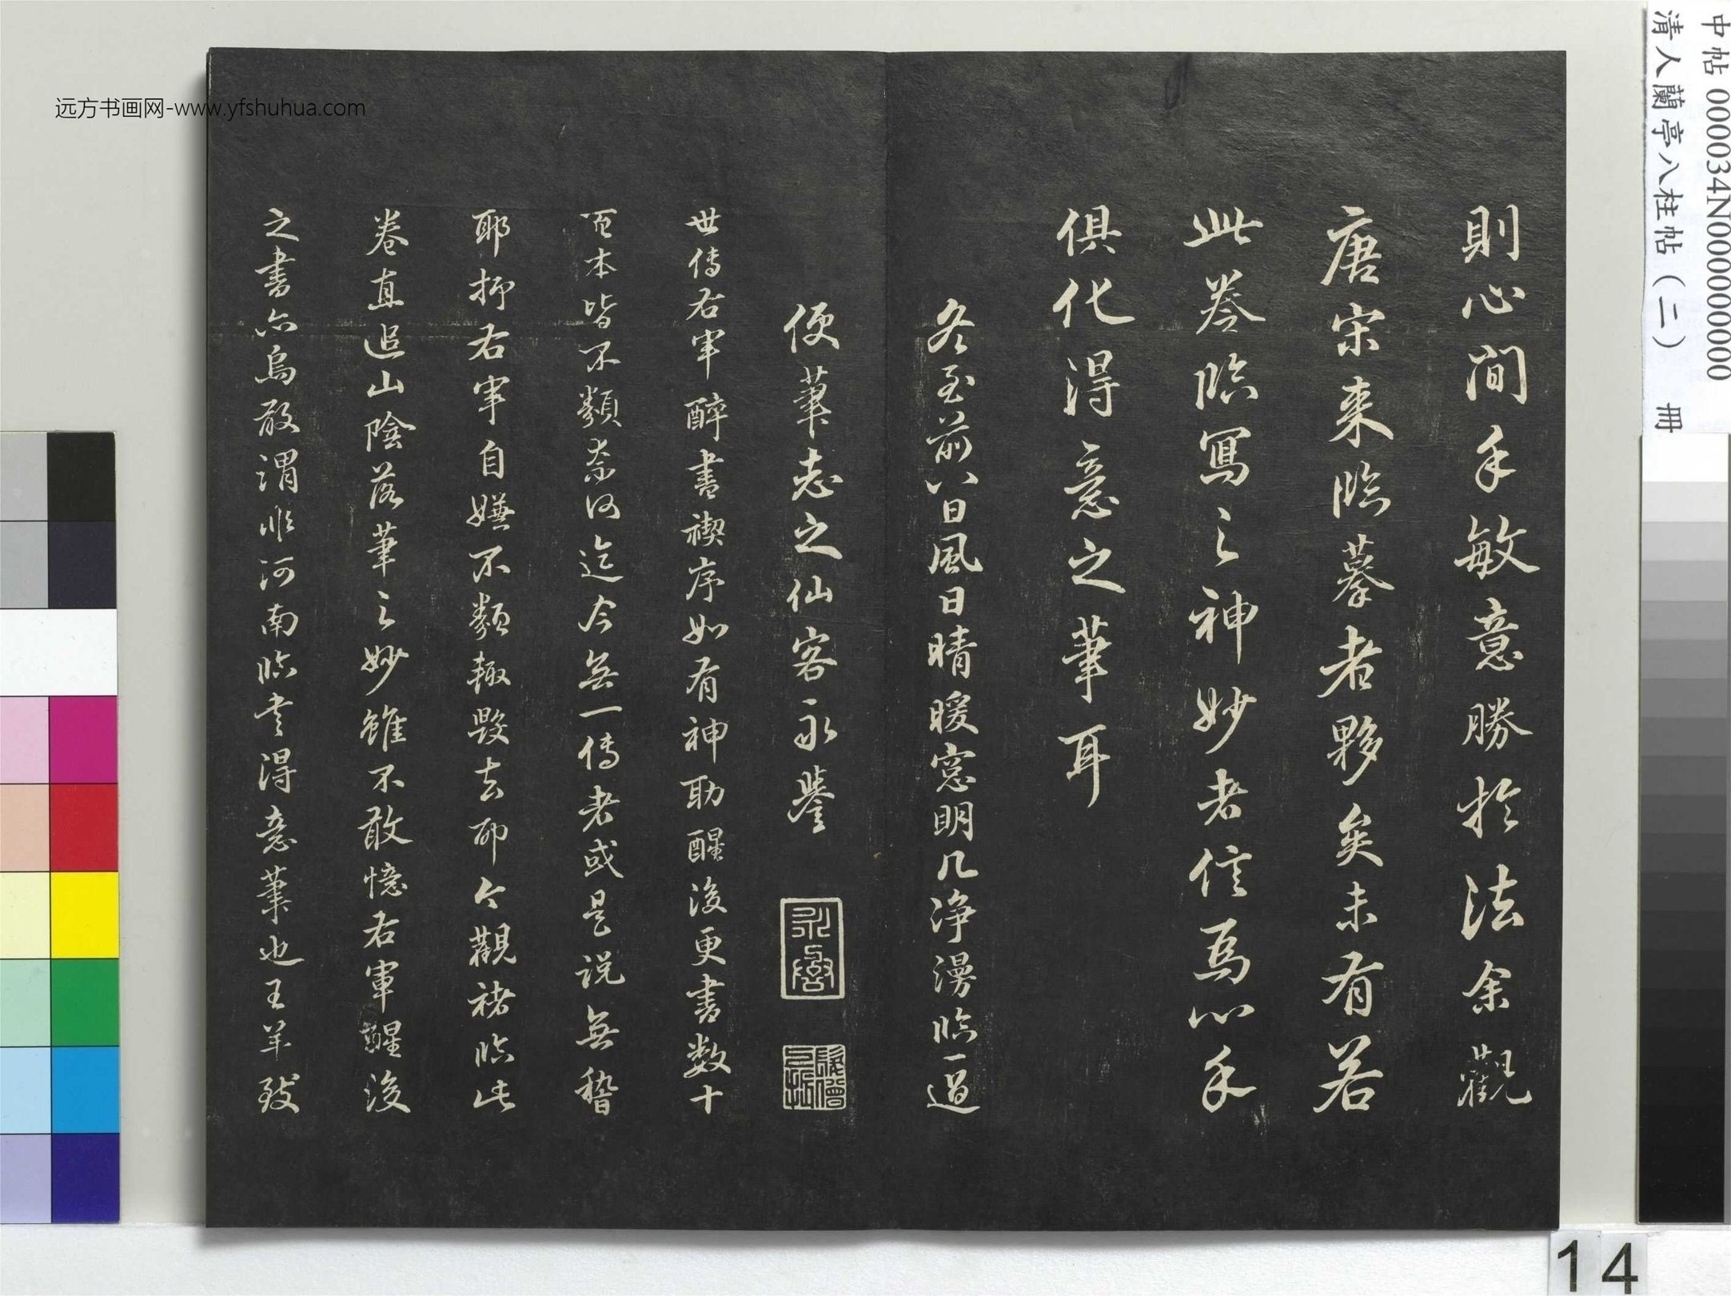 則心閒手敏意勝於法余觀
唐宋來臨摹者夥矣未有若
此卷臨寫之神妙者信為心手
俱化得意之筆耳
冬至前八日風日晴暖窓明几净漫臨一過
便筆志之仙客永譽
世傳右軍醉書禊序如有神助醒後更書数十
百本皆不類奈何迄今無一傳者或是説無稽
耶抑右軍自嫌不類輙毀去耶今觀褚臨此
卷直追山陰落筆之妙雖不敢憶右軍醒後
之書亦烏敢谓非河南臨書得意筆也王羊致
远方书画网-www.yfshuhua.com
中帖 000034N000000000
清人蘭亭八柱帖（二） 冊
14